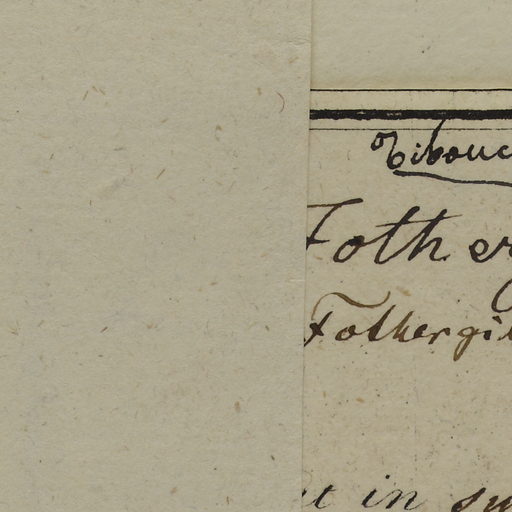 Tibouc
Fother
Fothergil
t in su